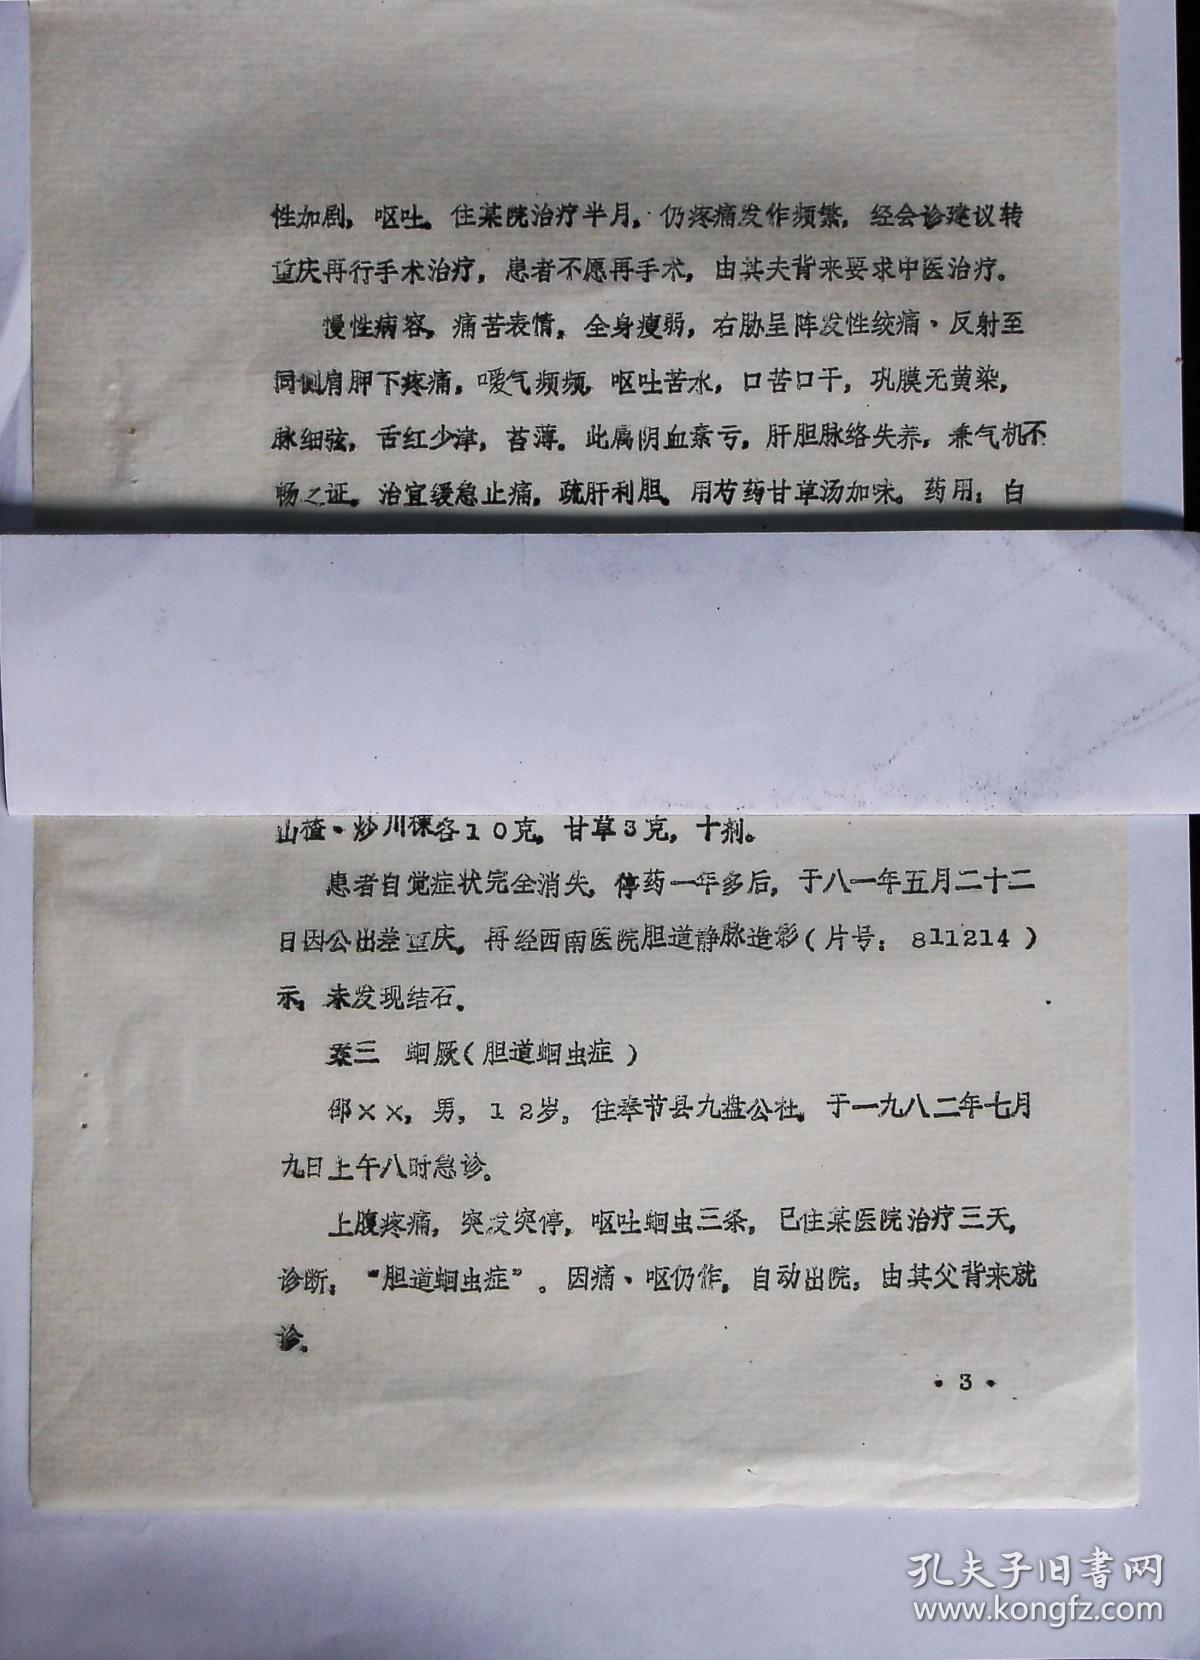 性加剧，呕吐。住某院治疗半月，仍疼痛发作频繁，经会诊建议转
重庆再行手术治疗，患者不愿再手术，由其夫背来要求中医治疗。
慢性病容，痛苦表情，全身瘦弱，右胁呈阵发性绞痛、反射至
同侧肩胛下疼痛，嗳气频频，呕吐苦水，口苦口干，巩膜无黄染，
脉细弦，舌红少津，苔薄。此属阴血素亏，肝胆脉络失养，兼气机不
畅之证。治宜缓急止痛，疏肝利胆。用芍药甘草汤加味。药用：白
山楂、炒川楝各10克，甘草3克，十剂。
患者自觉症状完全消失，停药一年多后，于八一年五月二十二
日因公出差重庆，再经西南医院胆道静脉造影（片号：811214）
示，未发现结石。
案三 蛔厥（胆道蛔虫症）
邵××，男，12岁，住奉节县九盘公社，于一九八二年七月
九日上午八时急诊。
上腹疼痛，突发突停，呕吐蛔虫三条，已住某医院治疗三天，
诊断，“胆道蛔虫症”。因痛、呕仍作，自动出院，由其父背来就
诊。
·3·
孔夫子旧书网
www.kongfz.com